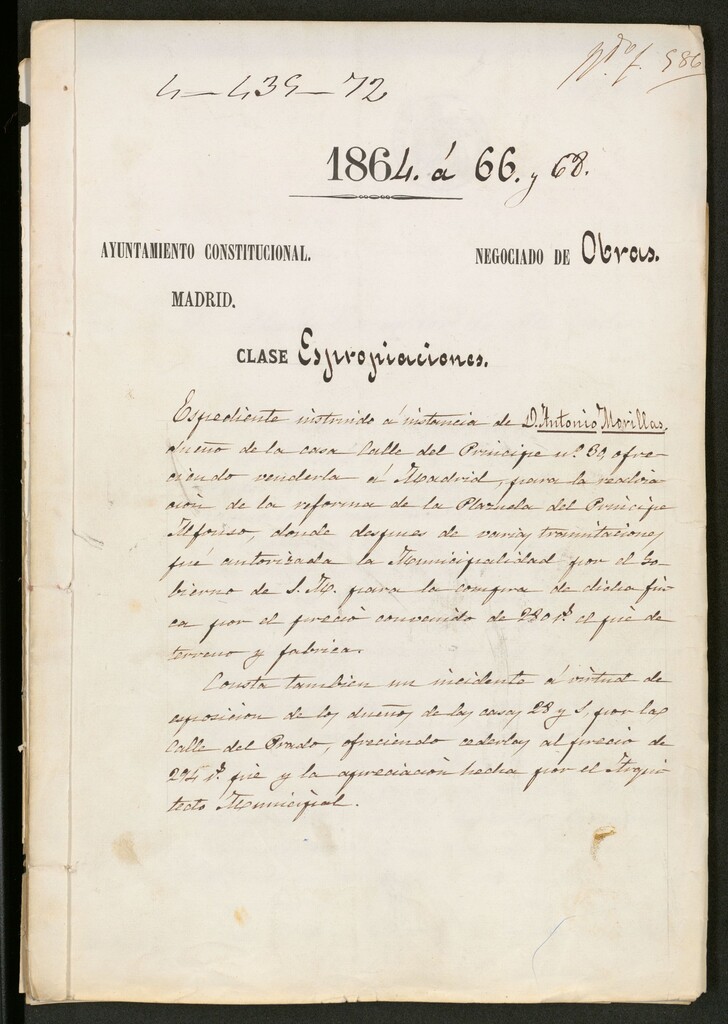 4-439-72
586
1864. á 66. y 68.
AYUNTAMIENTO CONSTITUCIONAL.
NEGOCIADO DE Obras.
MADRID.
CLASE Espropiaciones.
Espediente instruido á instancia de D. Antonio Morillas,
dueño de la casa Calle del Principe nº 30, ofre-
ciendo venderla á Madrid, para la realiza-
ción de la reforma de la Plazuela del Principe
Alfonso, donde despues de varias tramitaciones
fué autorizada la Municipalidad por el Go-
bierno de S. M. para la compra de dicha fin-
ca por el precio convenido de 280 rs. el pie de
terreno y fabrica.
Consta tambien un incidente á virtud de
esposicion de los dueños de las casas 28 y 1, por la
Calle del Prado, ofreciendo cederlas al precio de
294 rs. pie y la apreciación hecha por el Arqui-
tecto Municipal.